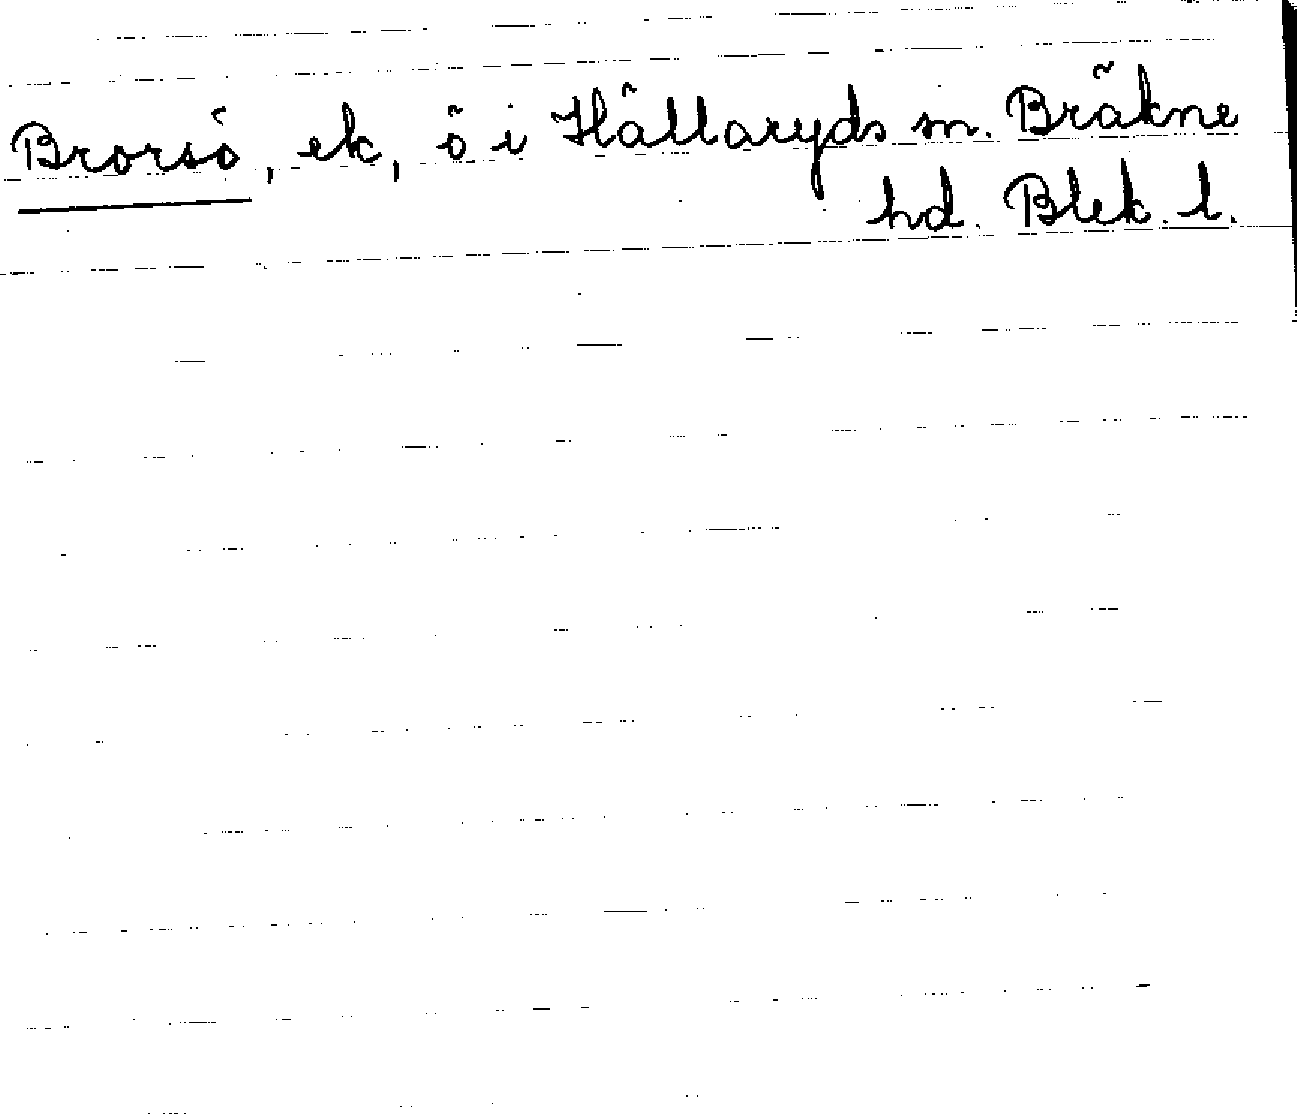 Brorsö, ek, ö i Hällaryds sn. Bräkne
hd. Blek. l.